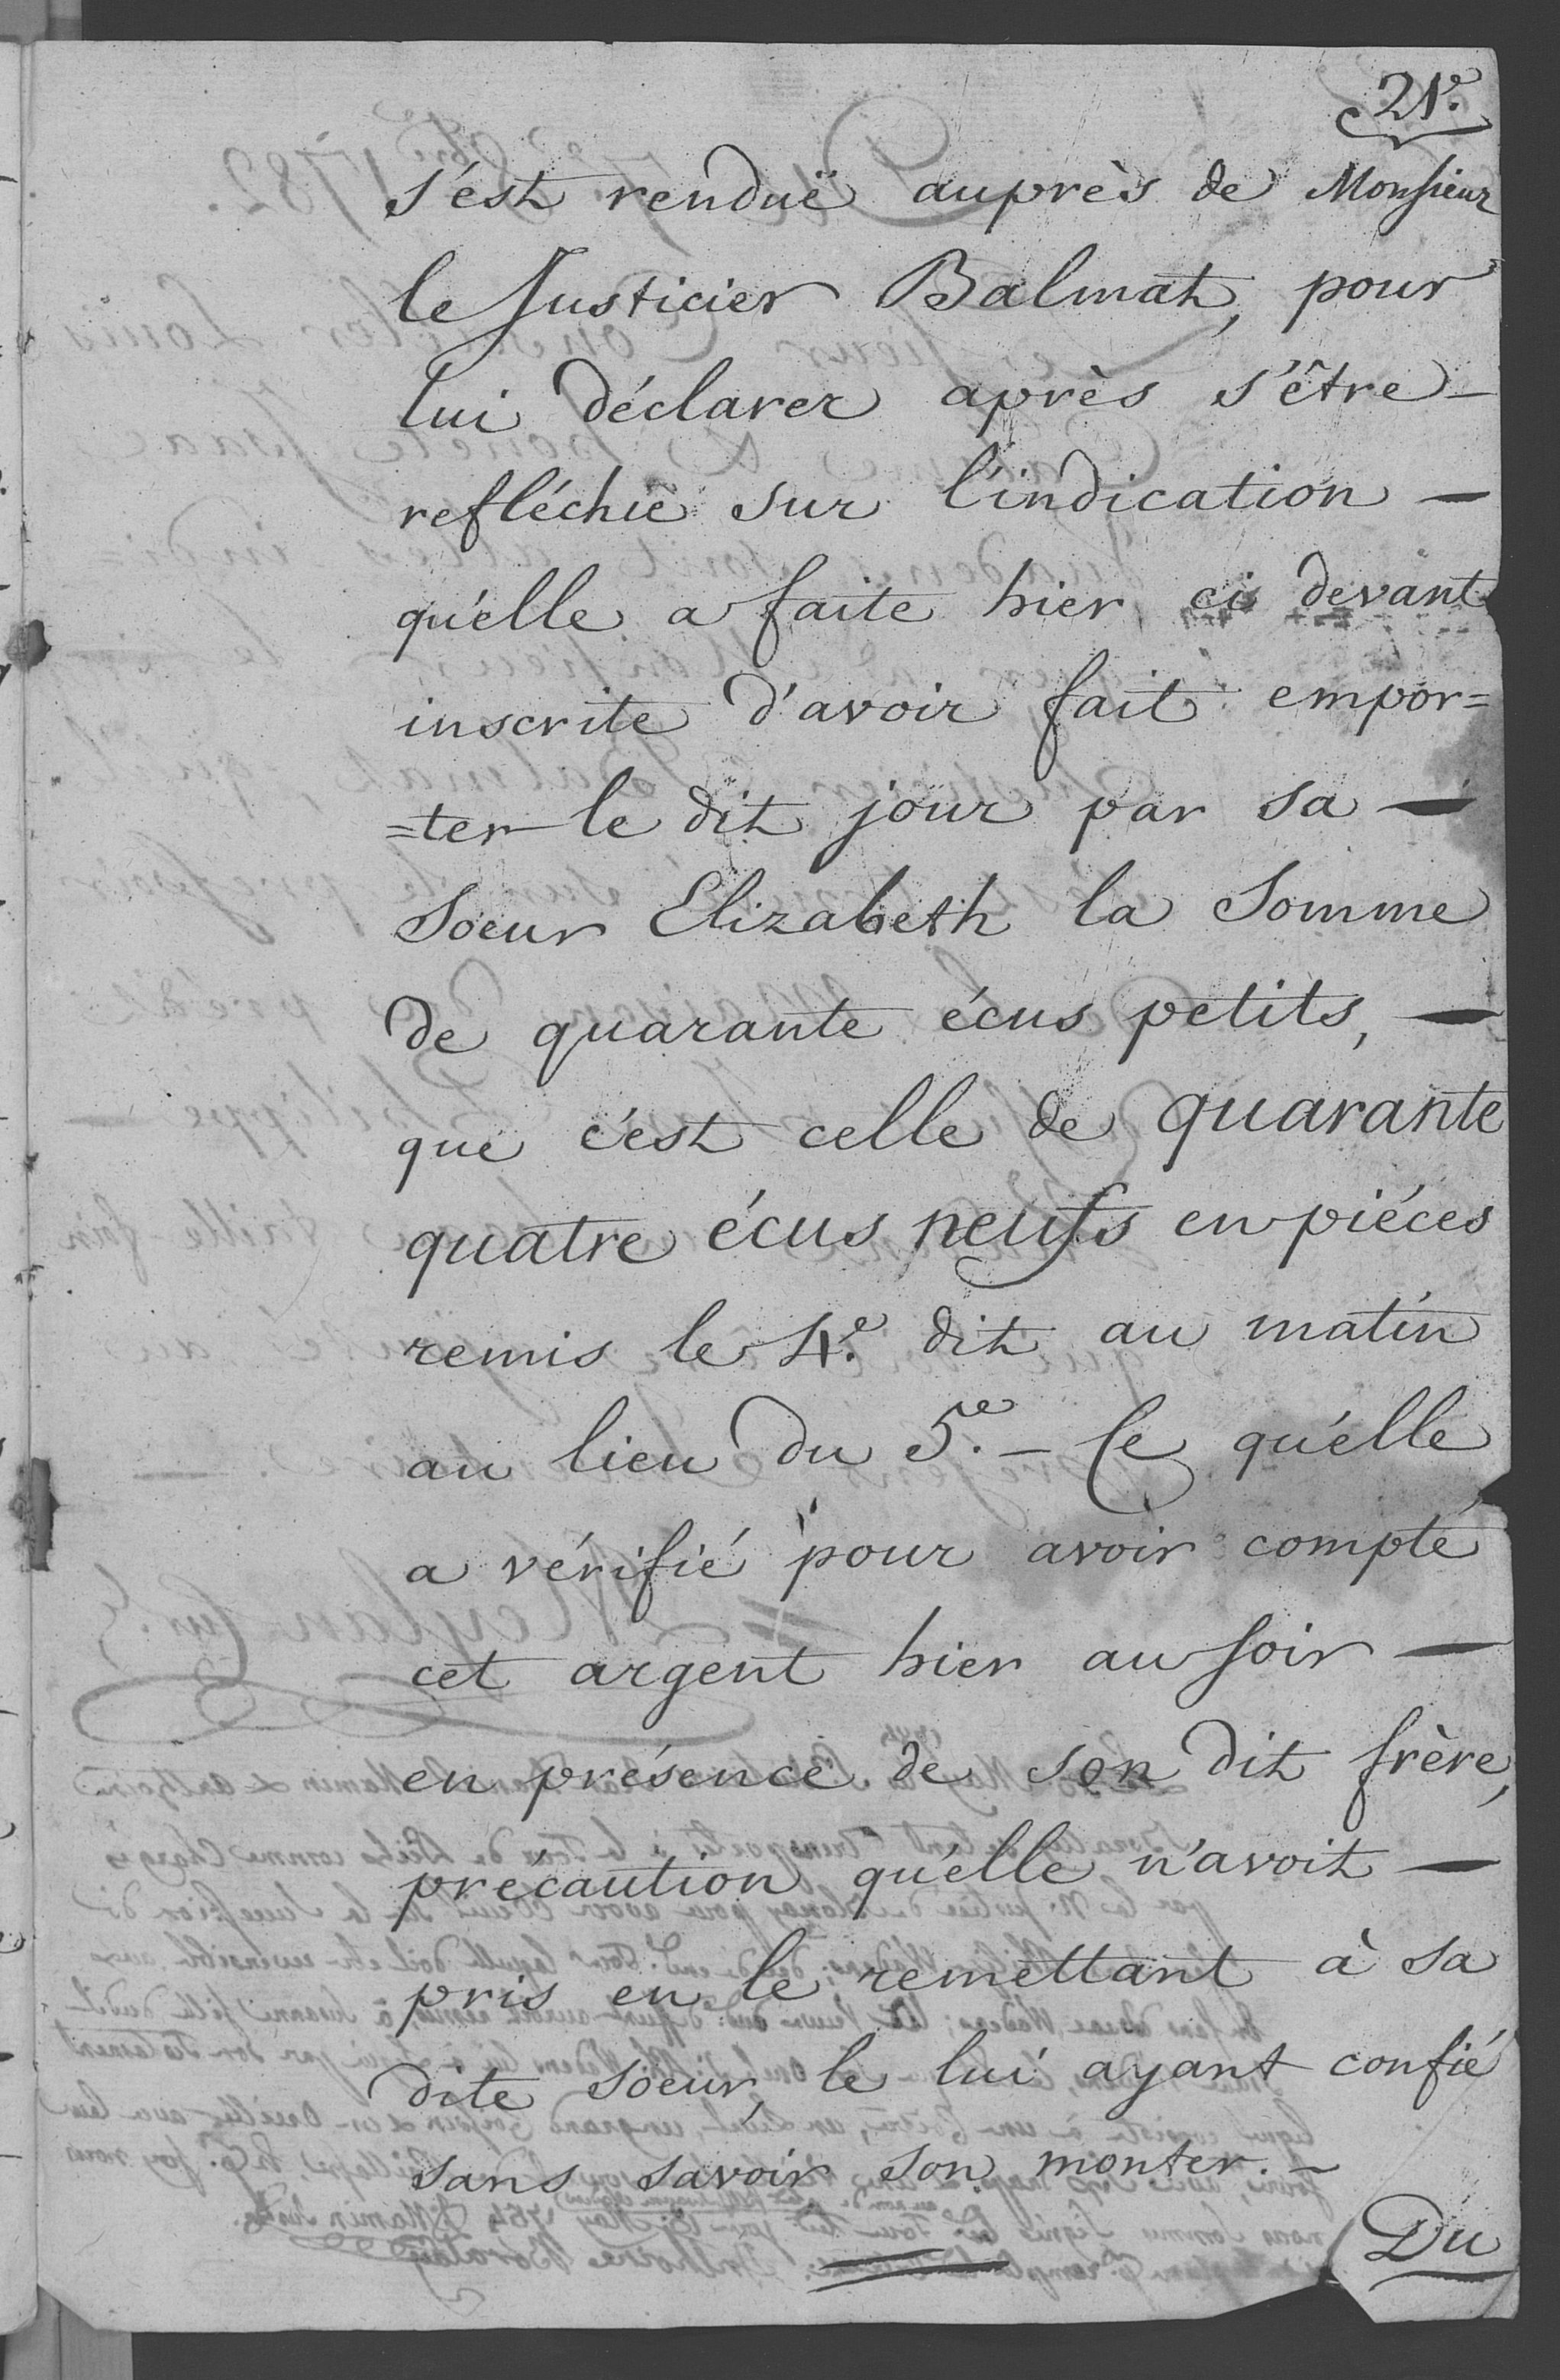 21e.
s'est renduë auprès de Monsieur
le Justicier Balmat, pour
lui déclarer après s'être –
refléchie sur l'indication –
qu'elle a faite hier ci devant
inscrite d'avoir fait empor=
=ter le dit jour par sa –
soeur Elizabeth la somme
de quarante écus petits, –
que c'est celle de quarante
quatre écus neufs en piéces
remis le 4e. dit au matin
au lieu du 5e. – Ce qu'elle
a vérifié pour avoir compté
cet argent hier au soir –
en présence de son dit frère,
précaution qu'elle n'avoit –
pris en le remettant à sa
dite soeur, le lui ayant confié
sans savoir son monter. –
Du